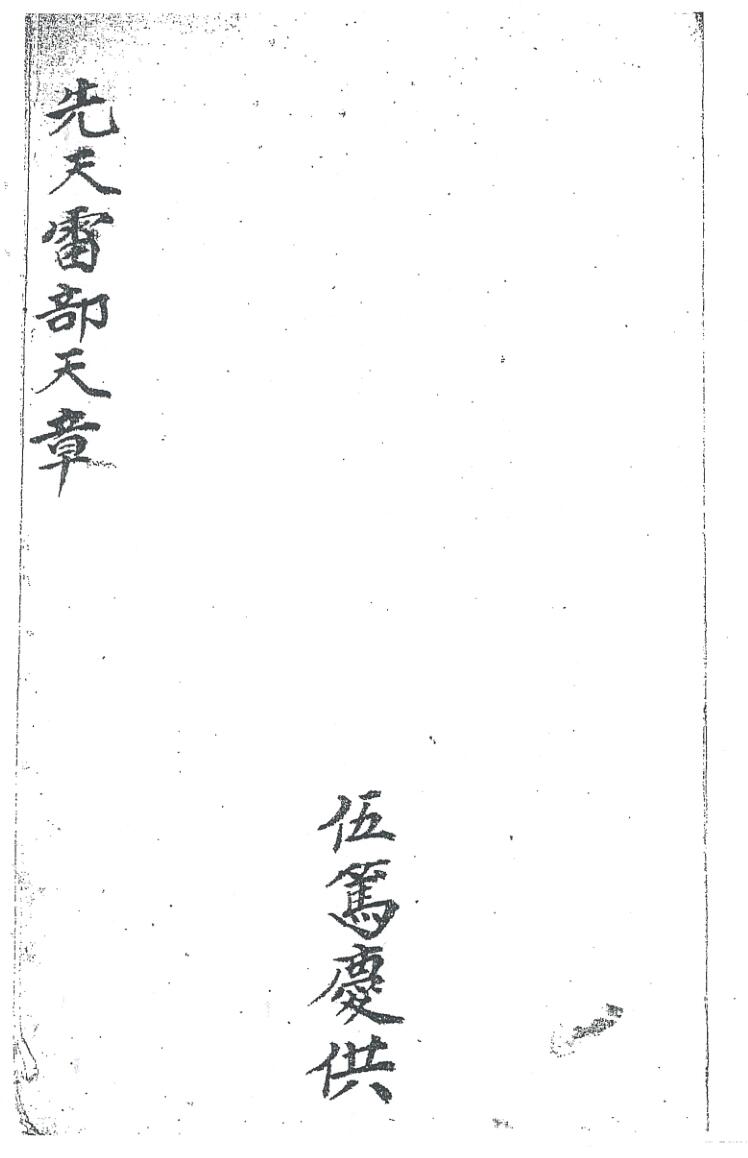 先天雷部天章
伍篤慶供